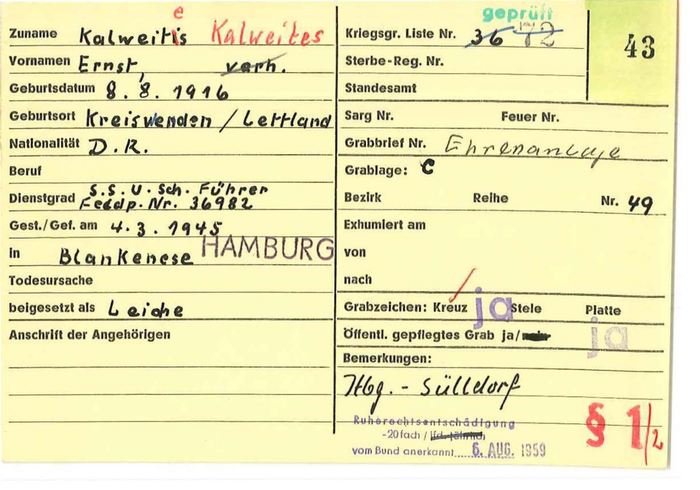 Zuname Kalweitis Kalweites
e
Vornamen Ernst, verh.
Geburtsdatum 8. 8. 1916
Geburtsort Kreiswenden / Lettland
Nationalität D.R.
Beruf
Dienstgrad S.S.U.Sch. Führer
Feldp. Nr. 36982
Gest./Gef. am 4. 3. 1945
in Blankenese HAMBURG
Todesursache
beigesetzt als Leiche
Anschrift der Angehörigen
geprüft
Kriegsgr. Liste Nr. 36 72
43
Sterbe-Reg. Nr.
Standesamt
Sarg Nr. Feuer Nr.
Grabbrief Nr. Ehrenanlage
Grablage: C
Bezirk Reihe Nr. 49
Exhumiert am
von
nach
Grabzeichen: Kreuz ja Stele Platte
Öffentl. gepflegtes Grab ja/nein ja
Bemerkungen:
Hbg. - Sülldorf
Ruherechtsentschädigung
-20fach / lfd. jährlich
vom Bund anerkannt 6. AUG. 1959
§ 1/2